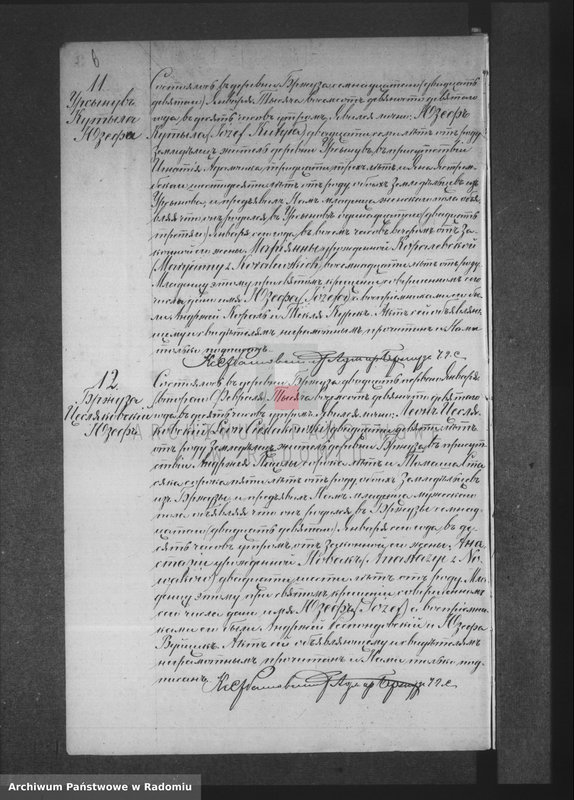 6
11
Урсынувъ
Кутыла
Юзефа
Состоялось въ деревни Бржуза семнадцатаго (двадцать
девятаго) Января Тысяча восемьсотъ девяносто девятаго
года въ десять часовъ утромъ. Явился лично: Юзефъ
Кутыла (Józef Kutyła) двадцати семи лѣтъ отъ роду
земледѣлецъ житель деревни Урсынувъ, въ присутствіи
тридцати трехъ лѣтъ и Яна
шестидесяти лѣтъ отъ роду обоихъ Земледѣльцевъ изъ
Урсынова, и предъявилъ Намъ младенца женскаго пола объя
вляя что онъ родился въ Урсыновѣ одиннадцатаго (двадцать
третьяго) Января сего года въ восемь часовъ вечеромъ отъ За
конной его жены Маріянны урожденной Коралевской
(Maryanny z Koralewskich) восемнадцати лѣтъ отъ роду.
Младенцу этому при святомъ крещеніи совершенномъ сего
числа дано имя Юзефа (Józefa) а воспріемниками его бы
ли Андржей Король и Текля Курекъ. Актъ сей объявля
ющему и свидѣтелямъ неграмотнымъ прочитанъ и Нами
только подписанъ.
12.
Бржуза
Цесляковскій
Юзефъ
Состоялось въ деревни Бржуза двадцать перваго Января
(втораго Февраля) Тысяча восемьсотъ девяносто девятаго
года въ десять часовъ утромъ. Явился лично: Леонъ Цесля
ковскій (Leon Cieślakowski) двадцати девяти лѣтъ
отъ роду Земледѣлецъ житель деревни Бржуза, въ присут
ствіи Андржея сорока лѣтъ и Томаша
сорока пяти лѣтъ отъ роду обоихъ Земледѣльцевъ
изъ Бржузы, и предъявилъ Намъ младенца мужескаго
пола объявляя что онъ родился въ Бржузѣ семнад
цатаго (двадцать девятаго) Января сего года, въ де
сять часовъ утромъ, отъ Законной его жены, Ана
стазіи урожденной Новакъ (Anastazyi z No
waków) двадцати шести лѣтъ отъ роду. Мла
денцу этому при святомъ крещеніи совершенномъ
сего числа дано имя Юзефъ (Józef) а воспріемни
ками его были Андржей и Юзефа
Вуйцикъ. Актъ сей объявляющему и свидѣтелямъ
неграмотнымъ прочитанъ и Нами только под
писанъ.
ARCHIWUM PAŃSTWOWE
W RADOMIU
Archiwum Państwowe w Radomiu